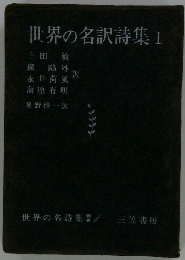 世界の名訳詩集1
上田 敏
森 鷗外
永井荷風
蒲原有明
訳
星野慎一訳
世界の名詩集
三笠書房